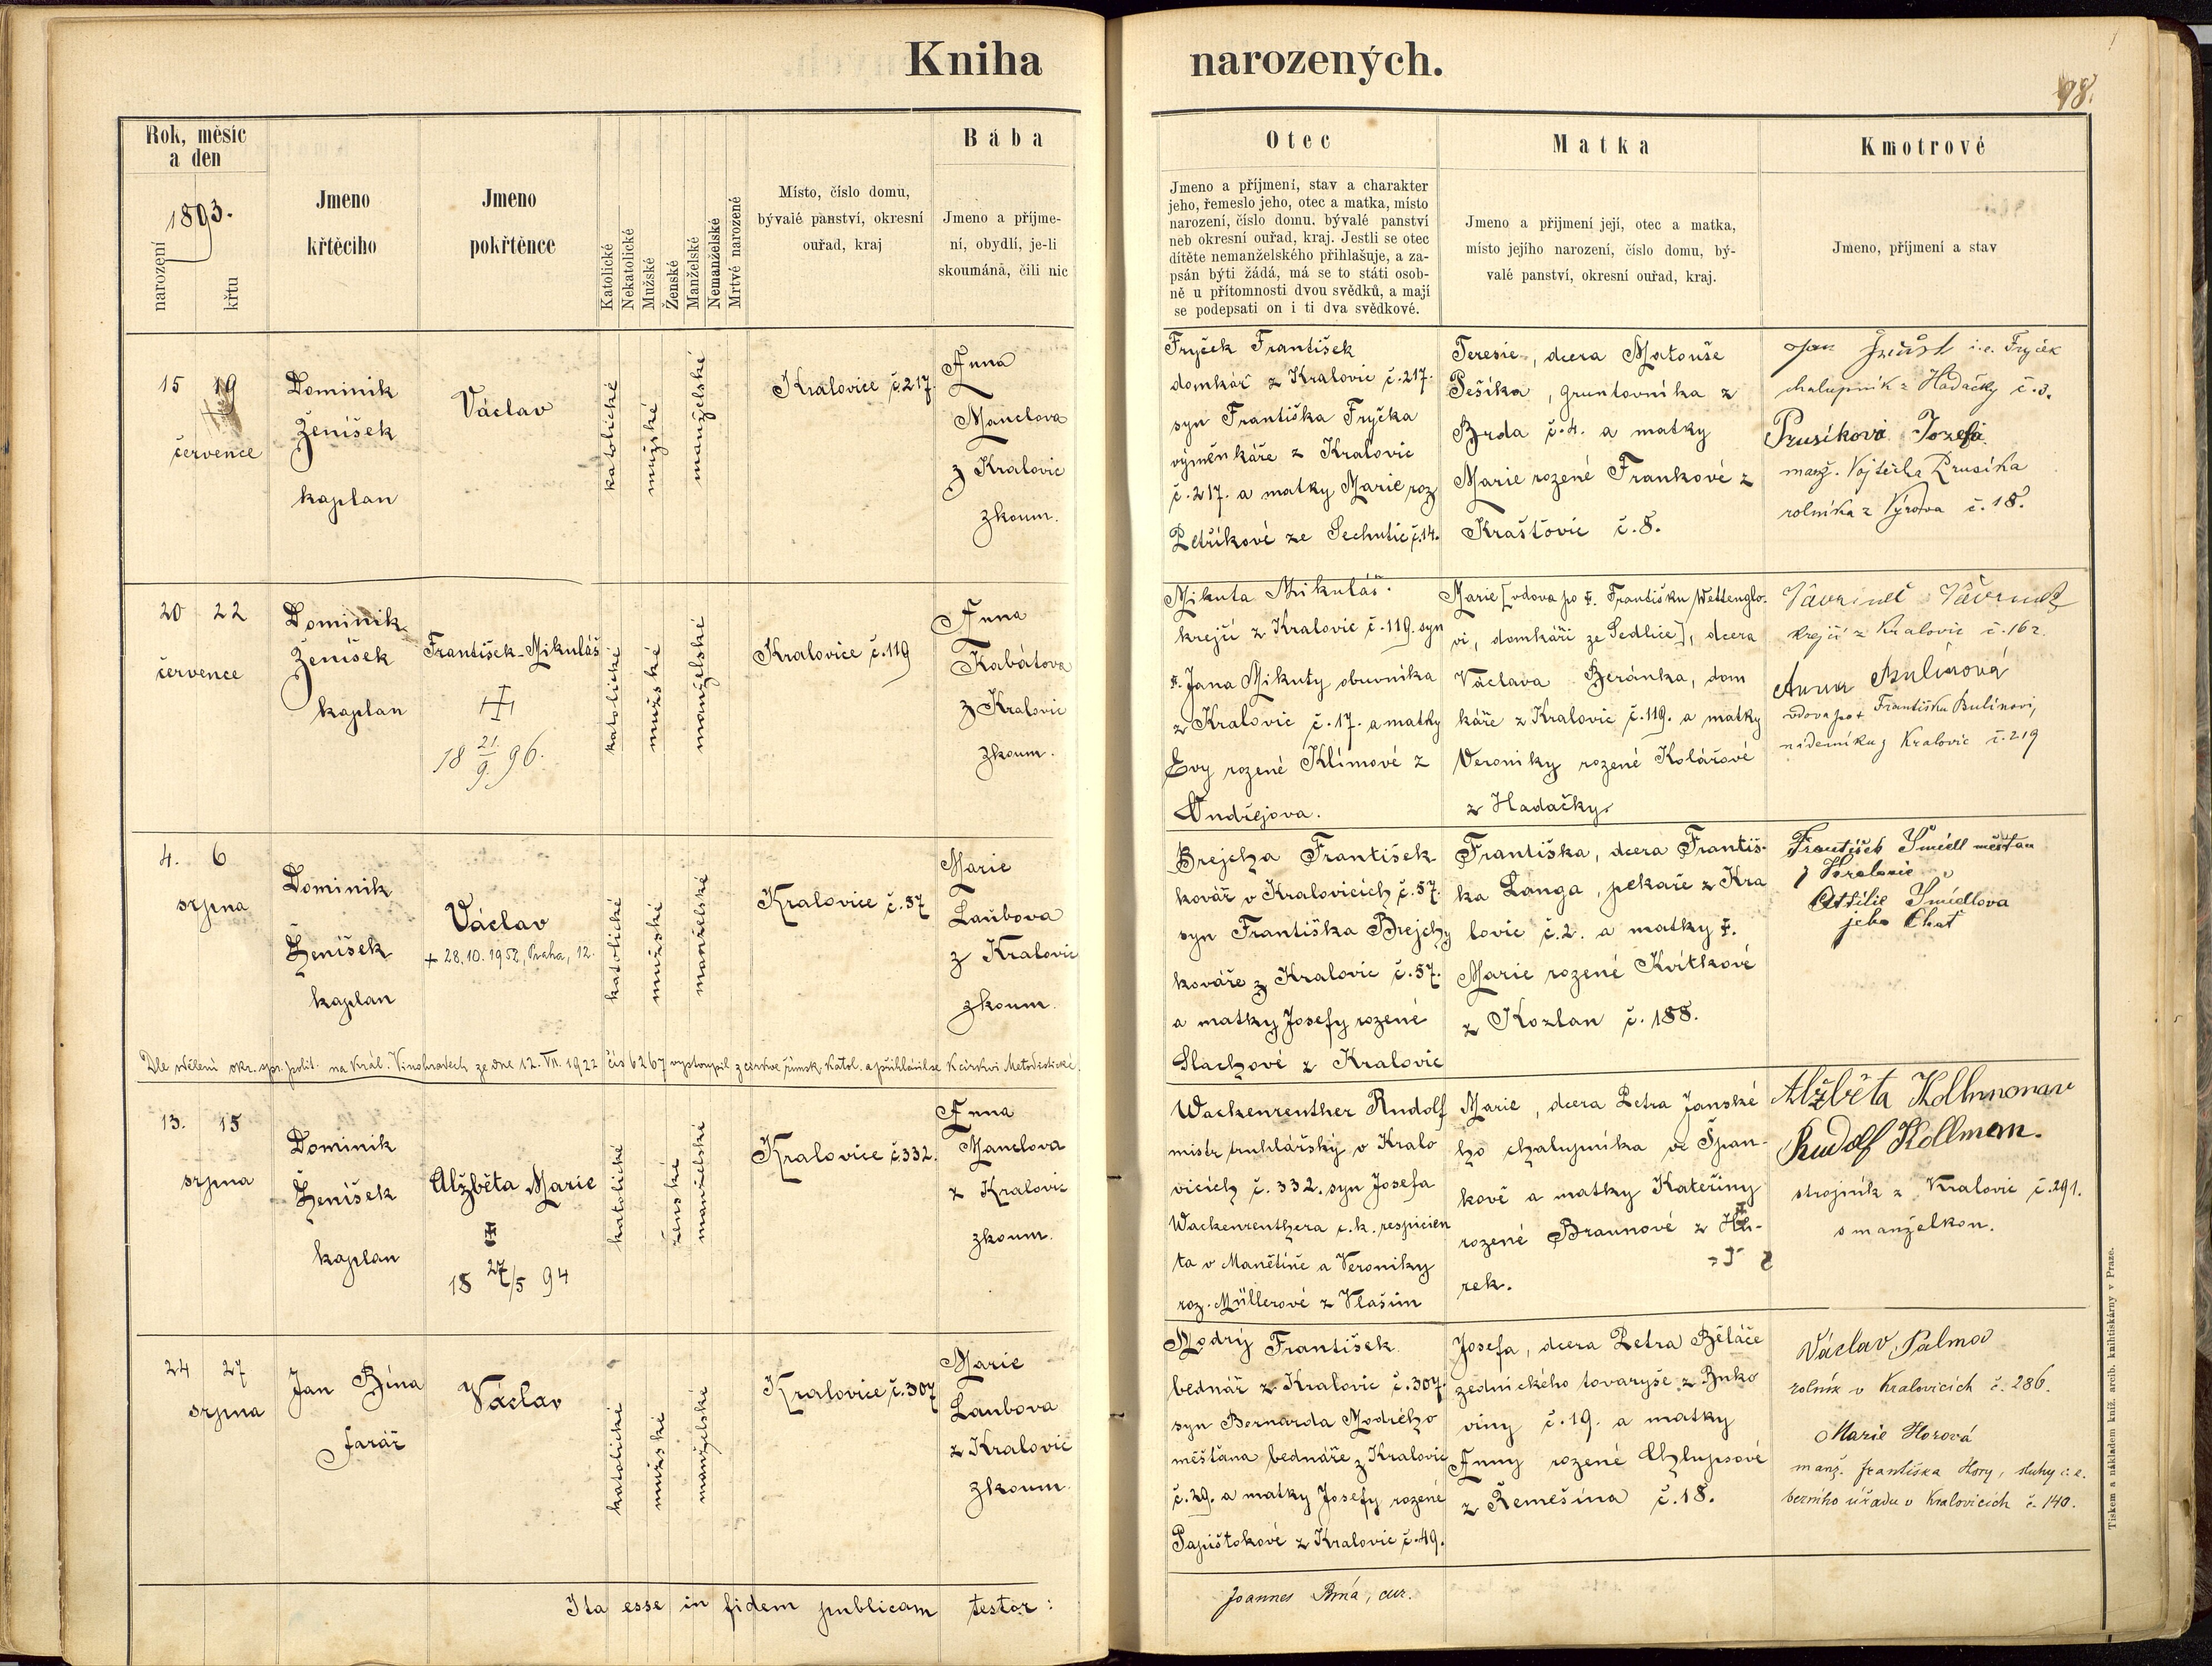 Kniha narozených.
98.
Rok, měsíc
a den
1893.
narození
křtu
Jmeno
křtěcího
Jmeno
pokřtěnce
Katolické
Nekatolické
Mužské
Ženské
Manželské
Nemanželské
Mrtvé narozené
Místo, číslo domu,
bývalé panství, okresní
ouřad, kraj
Bába
Jmeno a příjme-
ní, obydlí, je-li
skoumána, čili nic
Otec
Jmeno a příjmení, stav a charakter
jeho, řemeslo jeho, otec a matka, místo
narození, číslo domu. bývalé panství
neb okresní ouřad, kraj. Jestli se otec
dítěte nemanželského přihlašuje, a za-
psán býti žádá, má se to státi osob-
ně u přítomnosti dvou svědků, a mají
se podepsati on i ti dva svědkové.
Matka
Jmeno a přijmení její, otec a matka,
místo jejího narození, číslo domu, bý-
valé panství, okresní ouřad, kraj.
Kmotrové
Jmeno, příjmení a stav
15 19
července
Dominik
Ženíšek
kaplan
Václav
katolické
mužské
manželské
Kralovice č.217.
Anna
Manclova
z Kralovic
zkoum.
Fryček František
domkář z Kralovic č.217.
syn Františka Fryčka
výměnkáře z Kralovic
č.217. a matky Marie roz
Petříkové ze Sechutic č.14.
Teresie, dcera Matouše
Pešíka, gruntovníka z
Brda č.4. a matky
Marie rozené Frankové z
Kraštovic č.8.
Jan i.e. Fryček
chalupník z Hadačky č.3.
Prusíková Josefa
manž. Vojtěcha Prusíka
rolníka z Výrova č.18.
20 22
července
Dominik
Ženíšek
kaplan
František-Mikuláš
18 21./9. 96.
katolické
mužské
manželské
Kralovice č.119
Anna
Kabátova
z Kralovic
zkoum.
Mikuta Mikuláš.
krejčí z Kralovic č.119. syn
Jana Mikuty obuvníka
z Kralovic č.17. a matky
Evy rozené Klímové z
Ondřejova.
Marie [vdova po Františku Wettenglo-
vi, domkáři ze Sedlice], dcera
Václava Beránka, dom
káře z Kralovic č.119. a matky
Veroniky rozené Kolářové
z Hadačky.
krejčí z Kralovic č.162.
Anna Bulínová
vdova po + Františku Bulínovi,
nádeníku z Kralovic č.219
4. 6
srpna
Dominik
Ženíšek
kaplan
Václav
+ 28.10.1952, Praha, 12.
katolické
mužské
manželské
Kralovice č.57
Marie
Laubova
z Kralovic
zkoum.
Brejcha František
kovář v Kralovicích č.57.
syn Františka Brejchy
kováře z Kralovic č.57.
a matky Josefy rozené
Slachové z Kralovic
Františka, dcera Františ-
ka Langa, pekaře z Kra
lovic č.2. a matky
Marie rozené Kvítkové
z Kozlan č.188.
František Šmídl měšťan
z Kralovic
Ottilie Šmídlova
jeho choť
Dle sdělení okr. spr. polit. na Král. Vinohradech ze dne 12. VII. 1922 čís 6267 vystoupil z církve římsk. katol. a přihlásil se k církvi Metodistické.
13. 15
srpna
Dominik
Ženíšek
kaplan
Alžběta Marie
18 27/5 94
katolické
ženské
manželské
Kralovice č.332.
Anna
Manclova
z Kralovic
zkoum.
Wackenreuther Rudolf
mistr truhlářský v Kralo
vicích č.332. syn Josefa
Wackenreuthera c.k. respicien
ta v Manětíně a Veroniky
roz. Müllerové z Vlašim
Marie, dcera Petra Janské
ho chalupníka ve Špan-
kově a matky Kateřiny
rozené Braunové z
rek.
Alžběta
Rudolf Kollman.
strojník z Kralovic č.291.
s manželkou.
24 27
srpna
Jan Bína
farář
Václav
katolické
mužské
manželské
Kralovice č.307
Marie
Laubova
z Kralovic
zkoum.
Modrý František
bednář z Kralovic č.307.
syn Bernarda Modrého
měšťana bednáře z Kralovic
č.29. a matky Josefy rozené
Papištokové z Kralovic č.49.
Josefa, dcera Petra Běláče
zednického tovaryše z Buko
viny č.19. a matky
Anny rozené Chlupsové
z Řemešína č.18.
Václav Palma
rolník v Kralovicích č.286.
Marie Horová
manž. Františka Hory, sluhy c.k.
berního úřadu v Kralovicích č.140.
Ita esse in fidem publicam testor:
Joannes Bína, cur.
Tiskem a nákladem kníž. arcib. knihtiskárny v Praze.